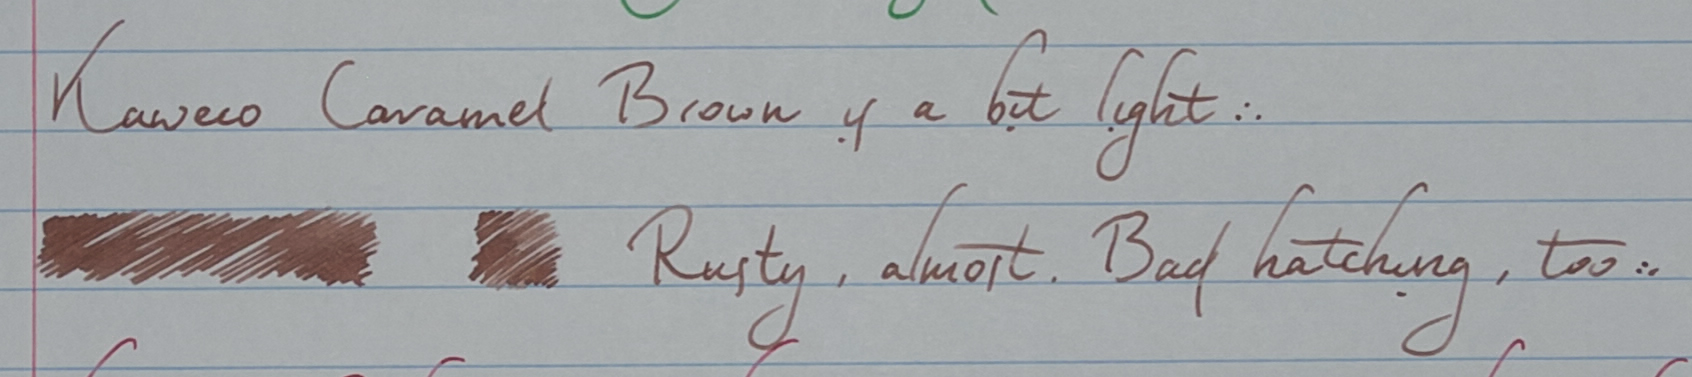 Kaweco Caramel Brown is a bit light :.
Rusty, almost. Bad hatching, too :.